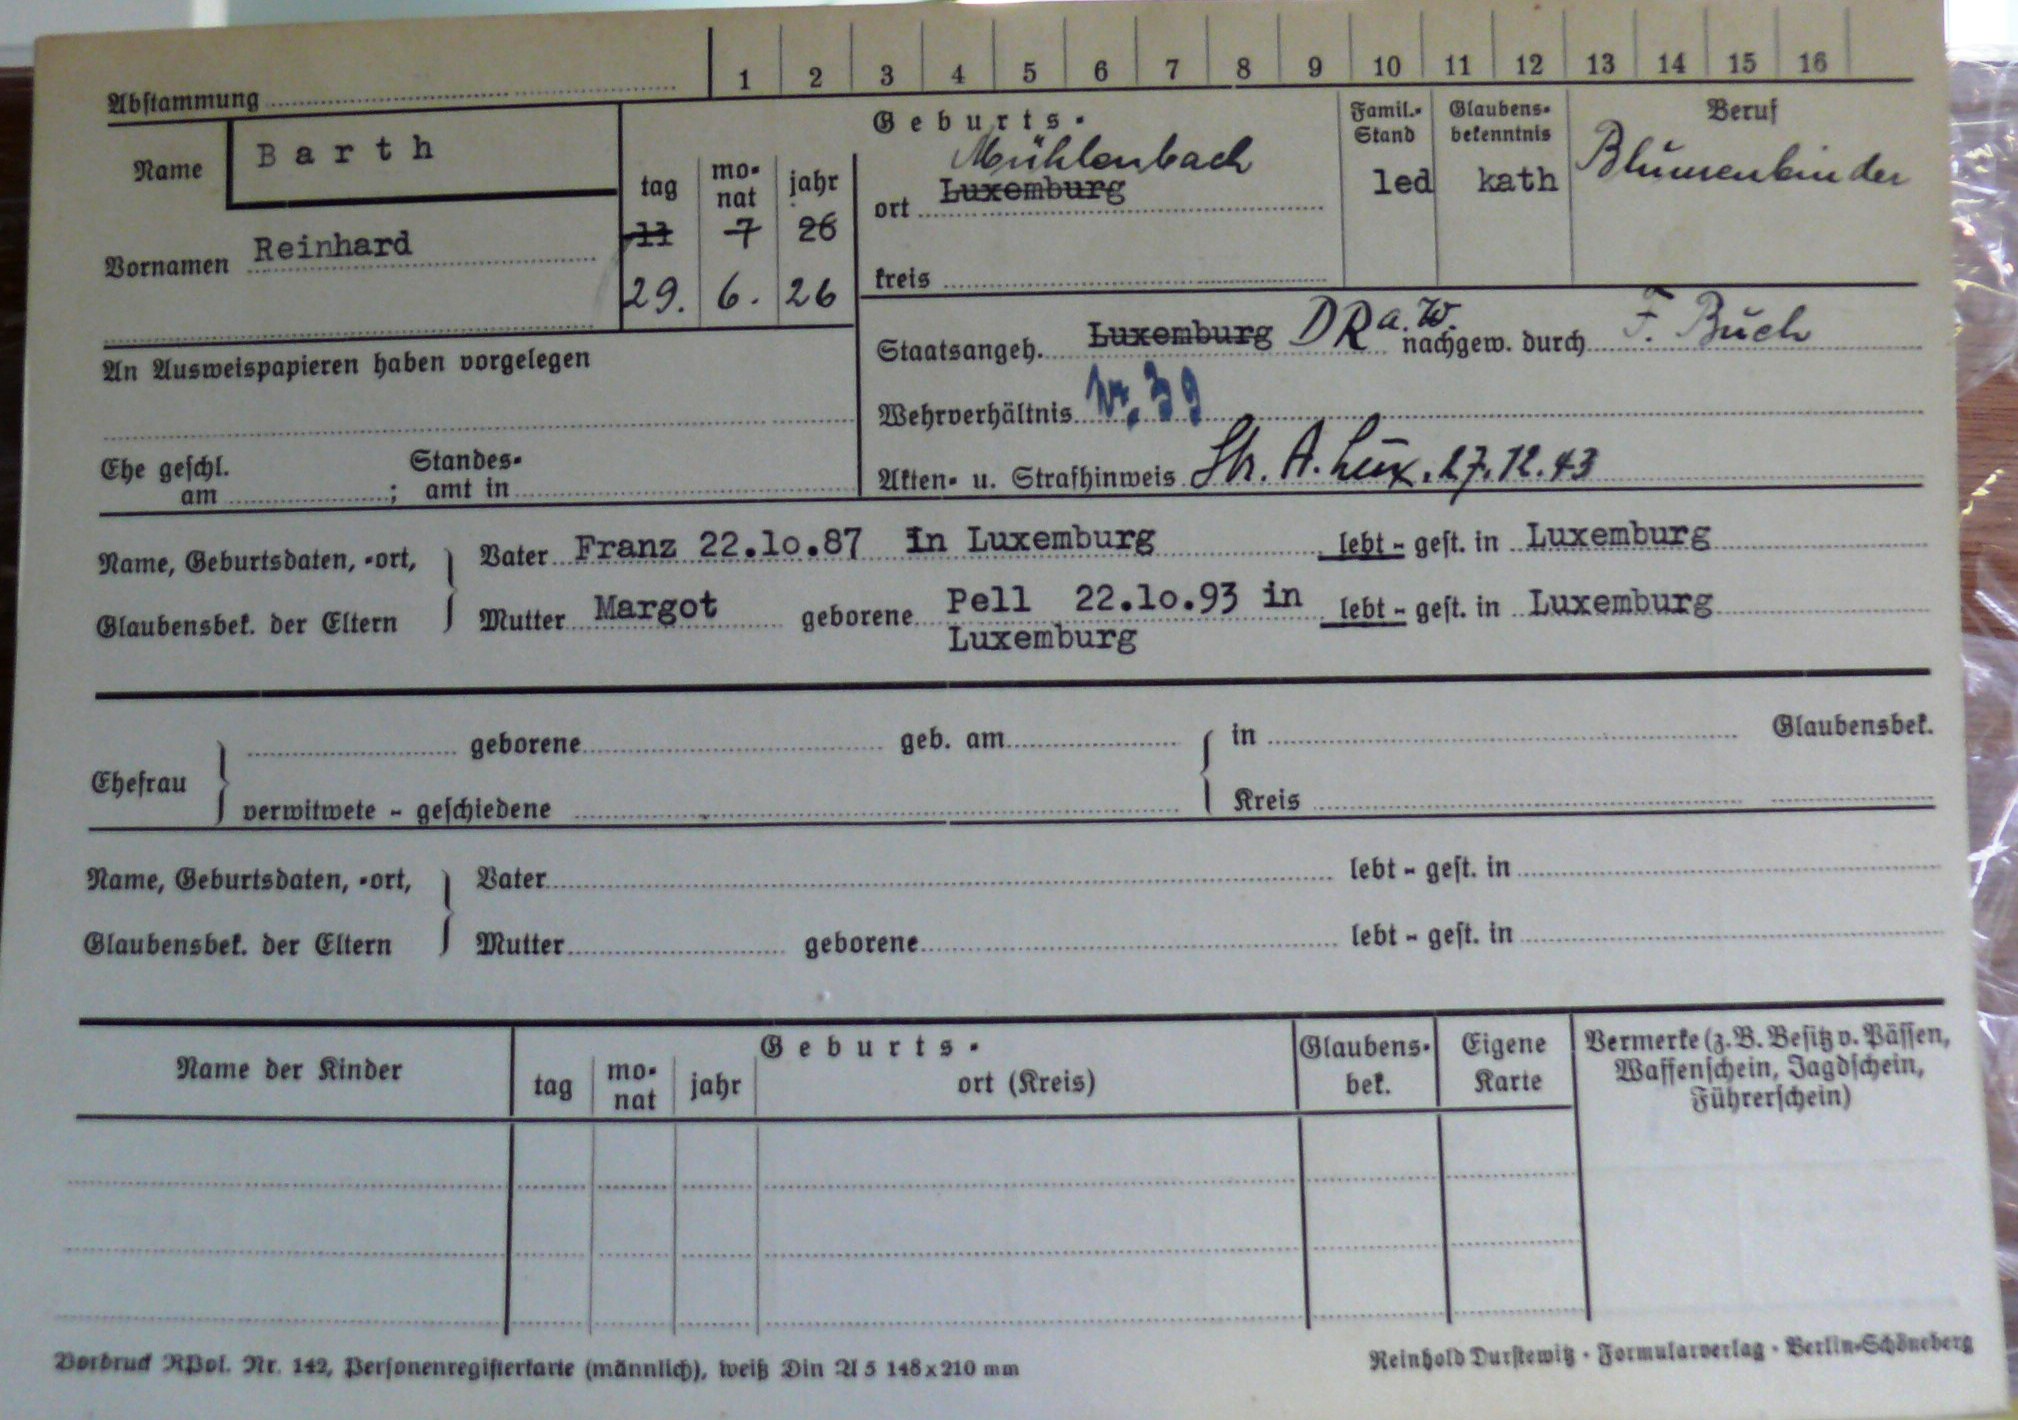 1 2 3 4 5 6 7 8 9 10 11 12 13 14 15 16
Abstammung
Name Barth
Vornamen Reinhard
Geburts-
tag monat jahr
11 7 26
29. 6. 26
Mühlenbach
ort Luxemburg
kreis
Famil.-Stand
led
Glaubensbekenntnis
kath
Beruf
Blumenbinder
An Ausweispapieren haben vorgelegen
Staatsangeh. Luxemburg DR a. W. nachgew. durch F. Buch
Wehrverhältnis Nr. 39
Ehe geschl. am ; Standesamt in
Akten- u. Strafhinweis Str. A. Lux. 27.12.43
Name, Geburtsdaten, -ort, Vater Franz 22.10.87 in Luxemburg lebt - gest. in Luxemburg
Glaubensbek. der Eltern Mutter Margot geborene Pell 22.10.93 in lebt - gest. in Luxemburg
Luxemburg
geborene geb. am in Glaubensbek.
Ehefrau
verwitwete - geschiedene Kreis
Name, Geburtsdaten, -ort, Vater lebt - gest. in
Glaubensbek. der Eltern Mutter geborene lebt - gest. in
Name der Kinder
Geburts-
tag monat jahr ort (Kreis)
Glaubensbek.
Eigene Karte
Vermerke (z.B. Besitz v. Pässen,
Waffenschein, Jagdschein,
Führerschein)
Vordruck RPol. Nr. 142, Personenregisterkarte (männlich), weiß Din A 5 148x210 mm
Reinhold Durstewitz · Formularverlag · Berlin-Schöneberg